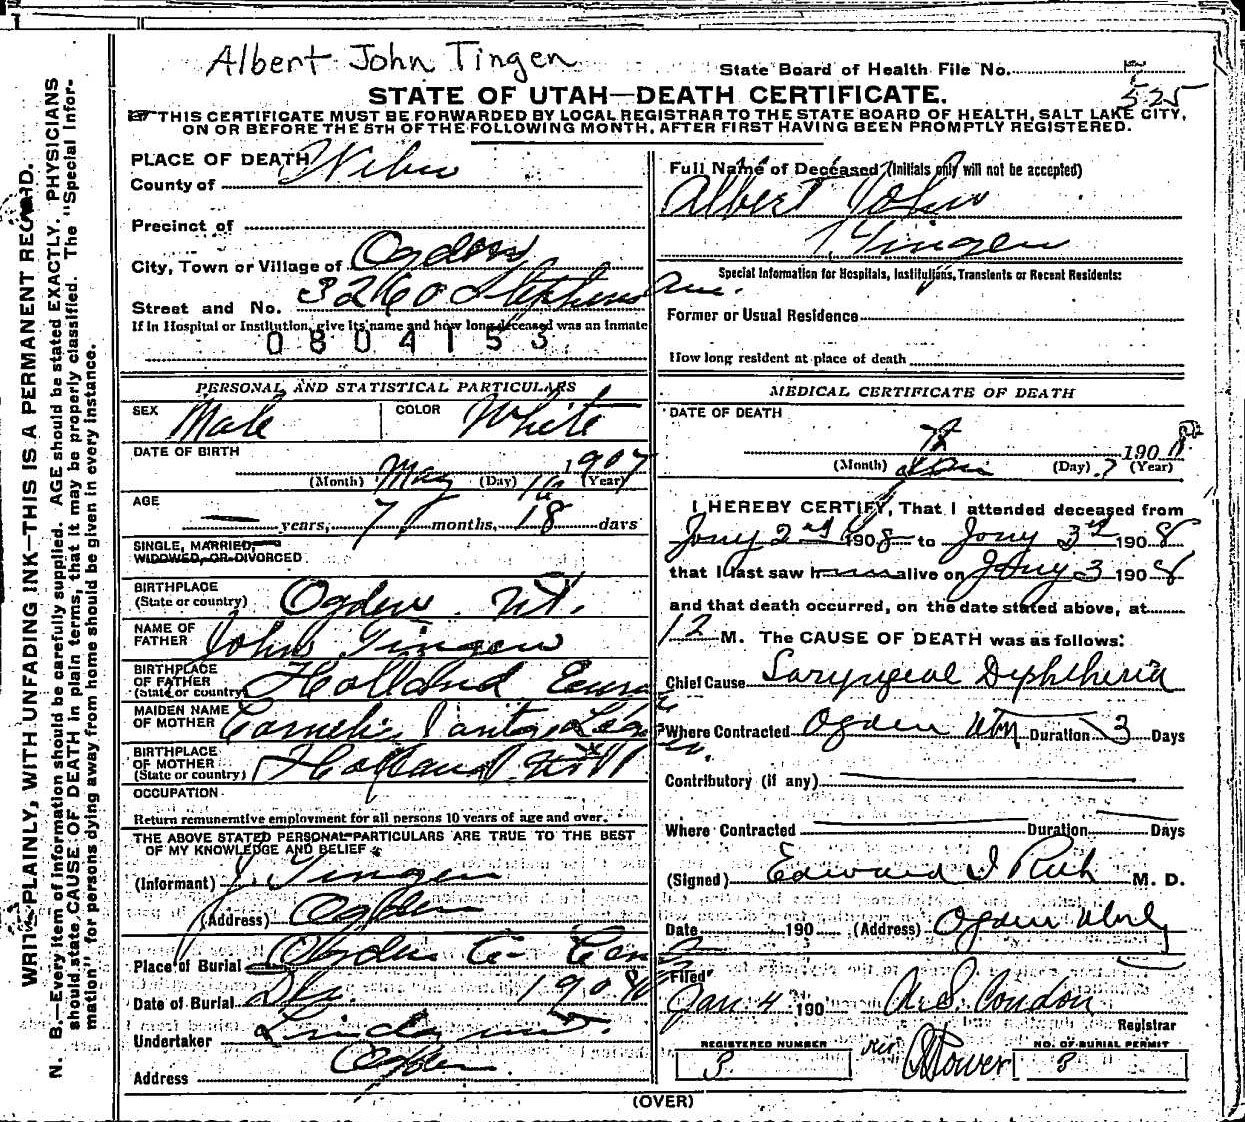 Albert John Tingen
State Board of Health File No. 525
STATE OF UTAH—DEATH CERTIFICATE.
THIS CERTIFICATE MUST BE FORWARDED BY LOCAL REGISTRAR TO THE STATE BOARD OF HEALTH, SALT LAKE CITY,
ON OR BEFORE THE 5TH OF THE FOLLOWING MONTH, AFTER FIRST HAVING BEEN PROMPTLY REGISTERED.
WRITE PLAINLY, WITH UNFADING INK—THIS IS A PERMANENT RECORD.
N. B.—Every item of information should be carefully supplied. AGE should be stated EXACTLY. PHYSICIANS
should state CAUSE OF DEATH in plain terms, that it may be properly classified. The "Special Infor-
mation" for persons dying away from home should be given in every instance.
PLACE OF DEATH
County of Weber
Precinct of
City, Town or Village of Ogden
Street and No. 3260 Stephens Ave.
If in Hospital or Institution, give its name and how long deceased was an Inmate
0804153
PERSONAL AND STATISTICAL PARTICULARS
SEX Male COLOR White
DATE OF BIRTH
May 16 1907
(Month) (Day) (Year)
AGE
— years, 7 months, 18 days
SINGLE, MARRIED,
WIDOWED, OR DIVORCED
BIRTHPLACE
(State or country) Ogden Ut.
NAME OF
FATHER John Tingen
BIRTHPLACE
OF FATHER
(State or country) Holland
MAIDEN NAME
OF MOTHER Cornelia
BIRTHPLACE
OF MOTHER
(State or country) Holland
OCCUPATION
Return remunerative employment for all persons 10 years of age and over.
THE ABOVE STATED PERSONAL PARTICULARS ARE TRUE TO THE BEST
OF MY KNOWLEDGE AND BELIEF
(Informant) J. Tingen
(Address) Ogden
Place of Burial Ogden C Cem
Date of Burial 1908
Undertaker Lindquist
Address Ogden
Full Name of Deceased (Initials only will not be accepted)
Albert John
Tingen
Special Information for Hospitals, Institutions, Transients or Recent Residents:
Former or Usual Residence
How long resident at place of death
MEDICAL CERTIFICATE OF DEATH
DATE OF DEATH
1908
(Month) Jan (Day) 3 (Year)
I HEREBY CERTIFY, That I attended deceased from
Jany 2nd 1908 to Jany 3rd 1908
that I last saw h alive on Jany 3 1908
and that death occurred, on the date stated above, at
12 M. The CAUSE OF DEATH was as follows:
Chief Cause Laryngeal Diphtheria
Where Contracted Ogden Utah Duration 3 Days
Contributory (if any)
Where Contracted Duration Days
(Signed) Edward I Rich M. D.
Date 190 (Address) Ogden Utah
Filed
Jan 4 190 A. S. Condon
Registrar
REGISTERED NUMBER
3
per Power
NO. OF BURIAL PERMIT
3
(OVER)